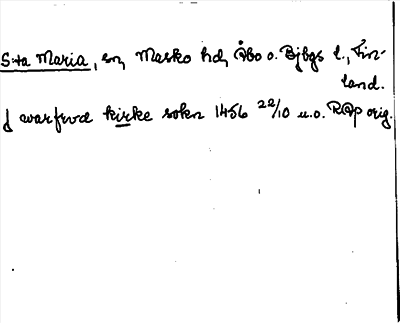 S:ta Maria, sn, Masko hd, Åbo o. Bjbgs l., Fin-
land.
J warfrvd kirke sokn 1456 22/10 u.o. RAp orig.